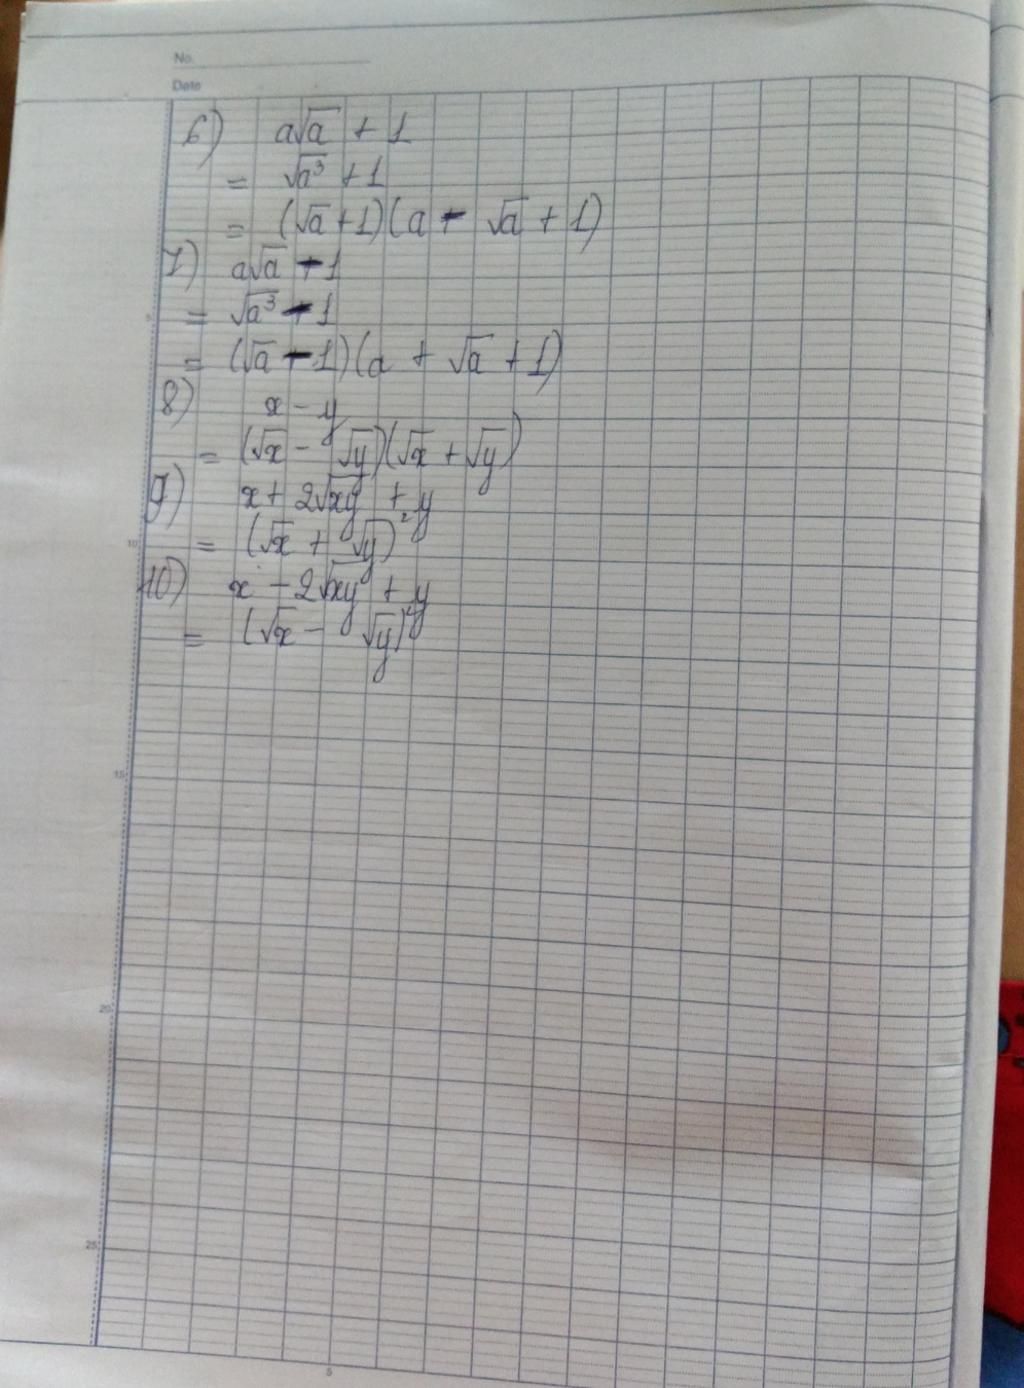 No.
Date
6) a√a + 1
= √a³ + 1
= (√a + 1)(a - √a + 1)
7) a√a - 1
= √a³ - 1
= (√a - 1)(a + √a + 1)
8) x - y
= (√x - √y)(√x + √y)
9) x + 2√xy + y
= (√x + √y)²
10) x - 2√xy + y
= (√x - √y)²
5
10
15
20
25
5